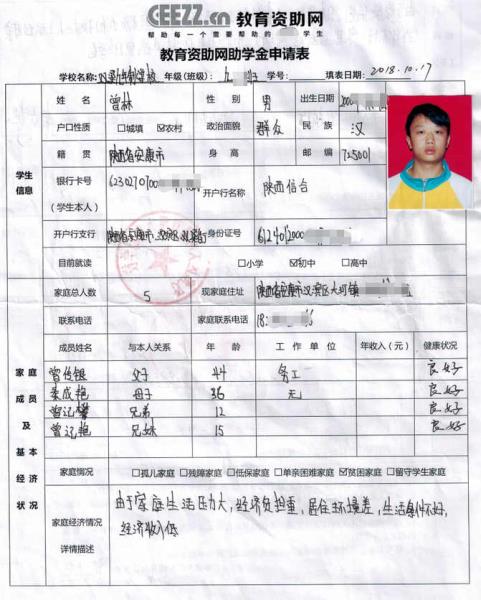 GEEZZ.cn 教育资助网
帮助每一个需要帮助的 学生
教育资助网助学金申请表
学校名称: 年级(班级): 九 学号: 填表日期: 2018.10.17
姓名 曾林 性别 男 出生日期 200
户口性质 □城填 ☑农村 政治面貌 群众 民族 汉
籍贯 陕西省安康市 身高 邮编 725001
学生信息
银行卡号 (学生本人) 6230270700 开户行名称 陕西信合
开户行支行 陕西省安康市 身份证号 612401200
目前就读 □小学 ☑初中 □高中
家庭总人数 5 现家庭住址 陕西省安康市汉滨区大河镇
联系电话 家庭联系电话 18
成员姓名 与本人关系 年龄 工作单位 年收入(元) 健康状况
曾传银 父子 44 务工 良好
成艳 母子 36 无 良好
曾 兄弟 12 良好
曾 艳 兄妹 15 良好
家庭成员及基本经济状况
家庭情况 □孤儿家庭 □残障家庭 □低保家庭 □单亲困难家庭 ☑贫困家庭 □留守学生家庭
家庭经济情况详情描述
由于家庭生活压力大,经济负担重,居住环境差,生活条件不好,
经济收入低